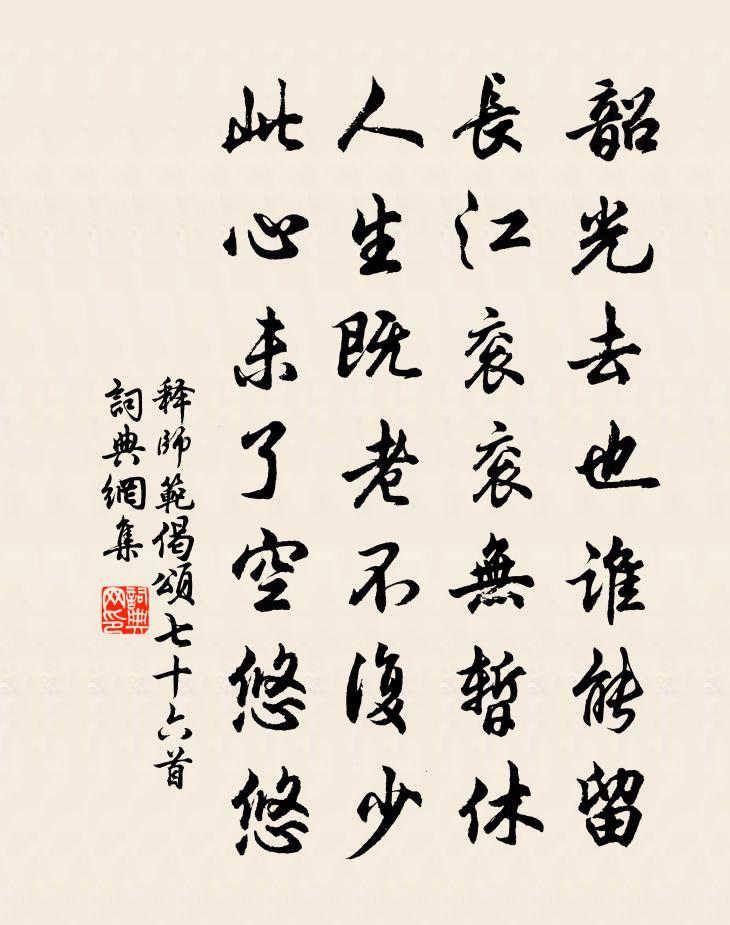 韶光去也誰能留
長江衮衮無暫休
人生既老不復少
此心未了空悠悠
释師範偈頌七十六首
詞典網集
詞典网印